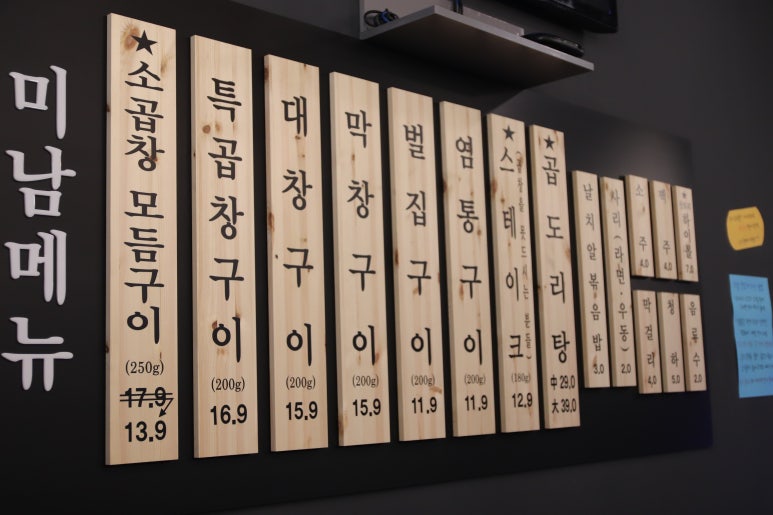 미남메뉴
★소곱창 모듬구이
(250g)
17.9
13.9
특곱창구이
(200g)
16.9
대창구이
(200g)
15.9
막창구이
(200g)
15.9
벌집구이
(200g)
11.9
염통구이
(200g)
11.9
★스테이크
(곱창을 못드시는 분들)
(180g)
12.9
★곱도리탕
中 29.0
大 39.0
날치알볶음밥
3.0
사리(라면·우동)
2.0
소주
4.0
맥주
4.0
하이볼
7.0
막걸리
4.0
청하
5.0
음료수
2.0